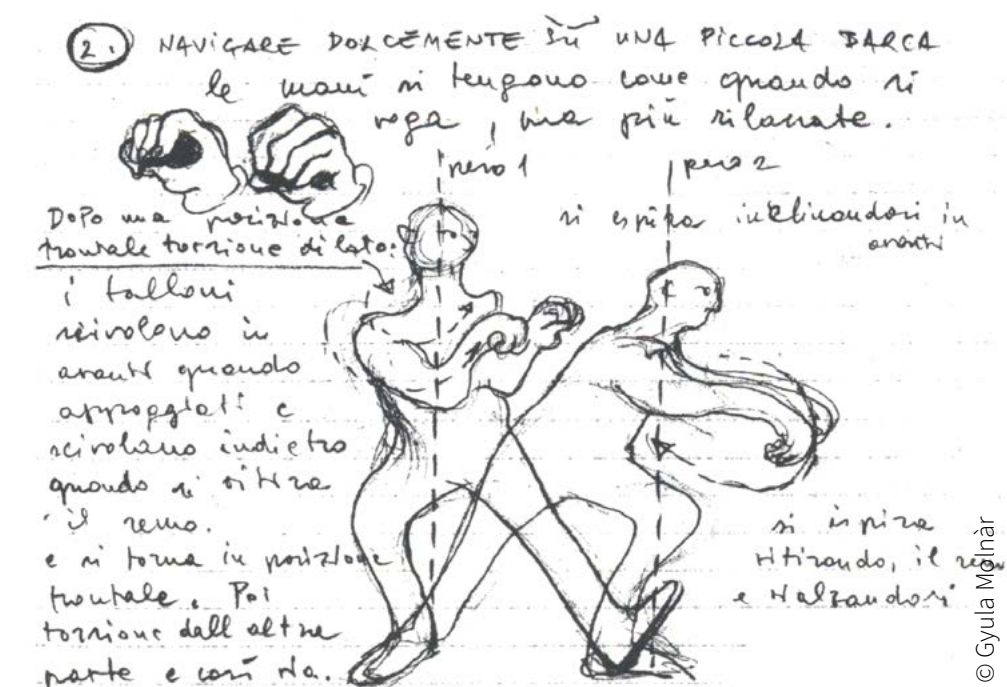 2. NAVIGARE DOLCEMENTE SU UNA PICCOLA BARCA
le mani si tengono come quando si
voga, ma più rilassate.
peso 1
peso 2
Dopo una posizione
frontale torsione di lato:
si espira inclinandosi in
avanti
i talloni
scivolano in
avanti quando
appoggiati e
scivolano indietro
quando si ritira
il remo.
e si torna in posizione
frontale. Poi
torsione dall'altra
parte e così via.
si inspira
ritirando, il remo
e rialzandosi
© Gyula Molnàr